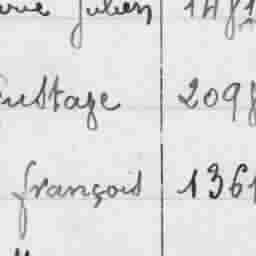 Julien 1481
Eustage 2098
françois 1361